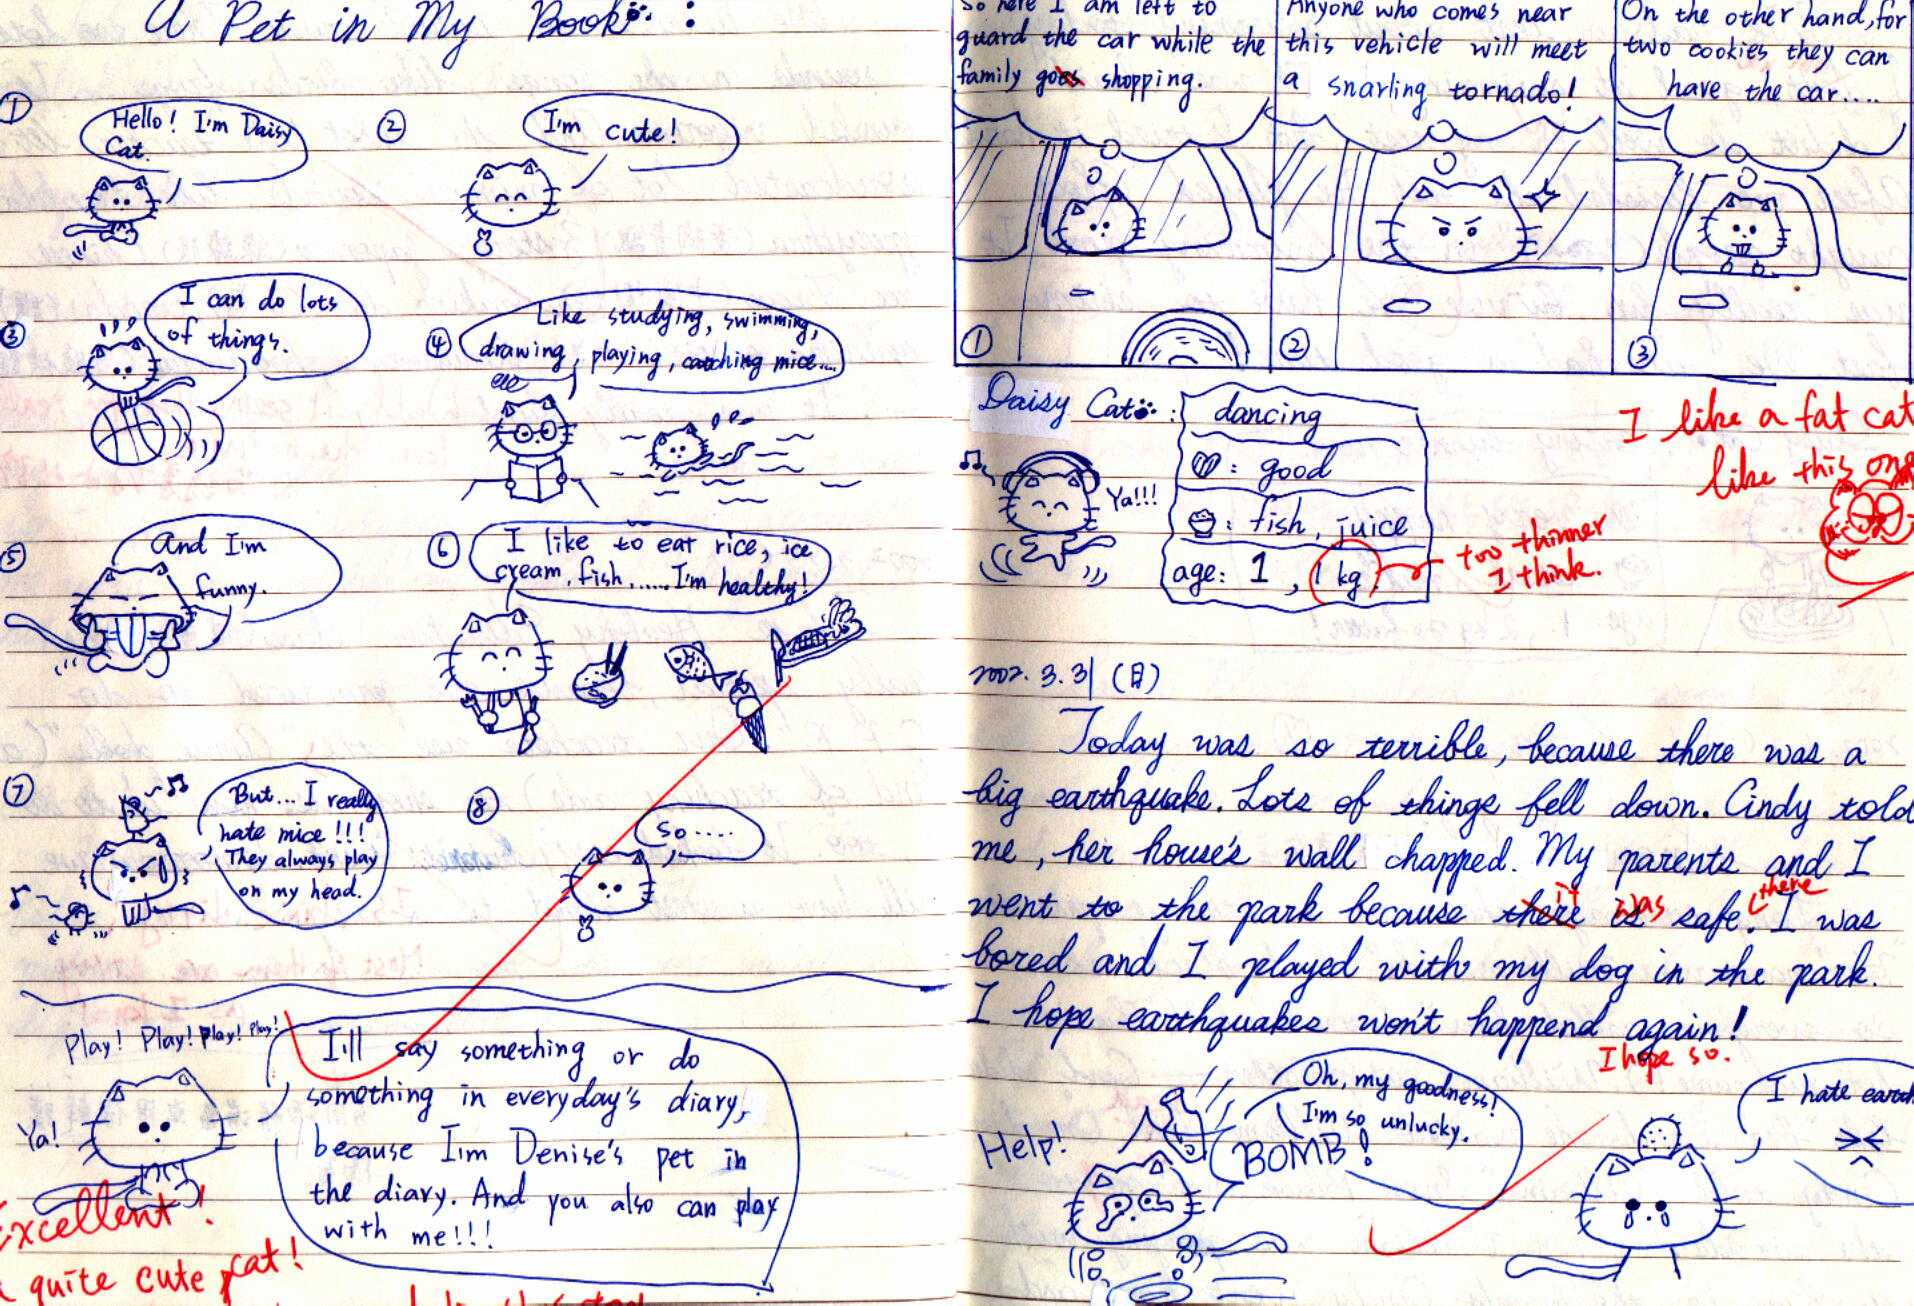 A Pet in My Book :
①
Hello! I'm Daisy
Cat.
②
I'm cute!
③
I can do lots
of things.
④
Like studying, swimming,
drawing, playing, catching mice....
⑤
And I'm
funny.
⑥
I like to eat rice, ice
cream, fish,......I'm healthy!
⑦
But... I really
hate mice!!!
They always play
on my head.
⑧
So....
Play! Play! Play! Play!
Ya!
I'll say something or do
something in everyday's diary,
because I'm Denise's pet in
the diary. And you also can play
with me!!!
Excellent!
quite cute cat!
So here I am left to
guard the car while the
family goes shopping.
①
Anyone who comes near
this vehicle will meet
a snarling tornado!
②
On the other hand, for
two cookies they can
have the car....
③
Daisy Cat :
Ya!!!
dancing
: good
: fish, juice
age: 1, 1 kg
too thinner
I think.
I like a fat cat
like this one
2002.3.31 (日)
Today was so terrible, because there was a
big earthquake. Lots of things fell down. Cindy told
me, her house's wall chapped. My parents and I
went to the park because there is safe. I was
it was there
bored and I played with my dog in the park.
I hope earthquakes won't happend again!
I hope so.
Help!
Oh, my goodness!
I'm so unlucky.
BOMB!
I hate earth